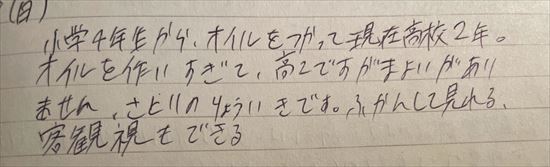 (日)
小学4年生から、オイルをつかって現在高校2年。
オイルを作いすぎて、高2ですがまよいがあり
ません、さとりのりょういきです。ふかんして見れる、
客観視もできる